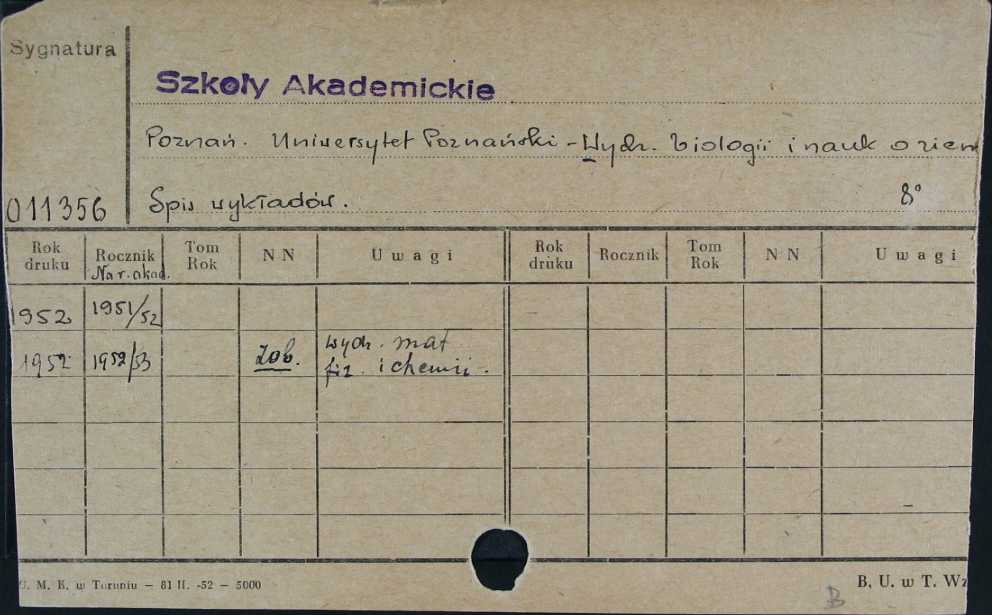 Sygnatura
Szkoły Akademickie
Poznań. Uniwersytet Poznański - Wydz. biologii i nauk o ziem
011356 Spis wykładów. 8°
Rok druku Rocznik Tom Rok NN Uwagi Rok druku Rocznik Tom Rok NN Uwagi
Na r. akad.
1952 1951/52
1952 1952/53 Zob. wydz. mat
fiz. i chemii.
U. M. K. w Toruniu – 81 II. -52 – 5000 B. U. w T. Wz
B